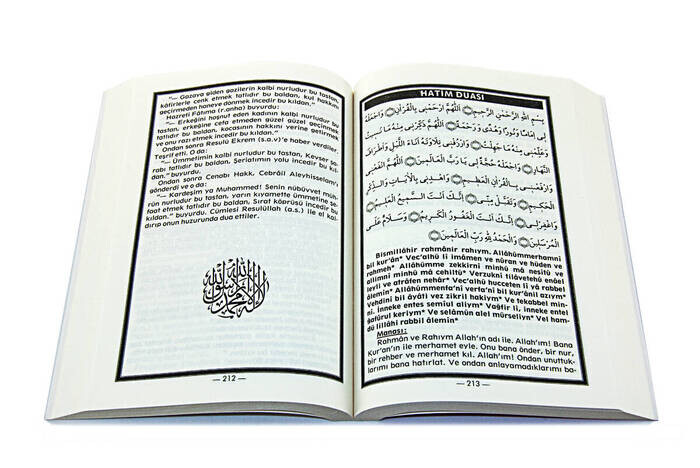 "— Gazaya giden gazilerin kalbi nurludur bu tastan,
kâfirlerle cenk etmek tatlıdır bu baldan, kul hakkını
geçirmeden haneye dönmek incedir bu kıldan."
Hazreti Fâtıma (r.anha) buyurdu:
"— Erkeğini hoşnut eden kadının kalbi nurludur bu
tastan, erkeğine cefa etmeden güzel güzel geçinmek
tatlıdır bu baldan, kocasının hakkını yerine getirmek
ve onu razı etmek incedir bu kıldan."
Ondan sonra Resulü Ekrem (s.a.v)'e haber verdiler.
Teşrif etti. O da:
"— Ümmetimin kalbi nurludur bu tastan, Kevser şa-
rabı tatlıdır bu baldan, Şeriatımın yolu incedir bu kıl-
dan." buyurdu.
Ondan sonra Cenabı Hakk, Cebrâil Aleyhisselam'ı
gönderdi ve o da:
"— Kardeşim ya Muhammed! Senin nübüvvet müh-
rün nurludur bu tastan, yarın kıyamette ümmetine şe-
faat etmek tatlıdır bu baldan, Sırat köprüsü incedir bu
kıldan." buyurdu. Cümlesi Resulüllah (a.s.) ile el kal-
dırıp onun huzurunda dua ettiler.
— 212 —
HATİM DUASI
بِسْمِ اللّٰهِ الرَّحْمٰنِ الرَّحِيمِ اَللّٰهُمَّ ارْحَمْنِى بِالْقُرْاٰنِ وَاجْعَلْهُ
لِى اِمَامًا وَنُورًا وَهُدًى وَرَحْمَةً اَللّٰهُمَّ ذَكِّرْنِى مِنْهُ مَا نَسِيتُ
وَعَلِّمْنِى مِنْهُ مَا جَهِلْتُ وَارْزُقْنِى تِلَاوَتَهُ اٰنَاءَ اللَّيْلِ وَاَطْرَافَ
النَّهَارِ وَاجْعَلْهُ حُجَّةً لِى يَا رَبَّ الْعَالَمِينَ اَللّٰهُمَّ انْفَعْنَا
وَارْفَعْنِى بِالْقُرْاٰنِ الْعَظِيمِ وَاهْدِنِى بِالْاٰيَاتِ وَالذِّكْرِ
الْحَكِيمِ وَتَقَبَّلْ مِنِّى اِنَّكَ اَنْتَ السَّمِيعُ الْعَلِيمُ
وَاغْفِرْلِى اِنَّكَ اَنْتَ الْغَفُورُ الْكَرِيمُ وَسَلَامٌ عَلَى
الْمُرْسَلِينَ وَالْحَمْدُ لِلّٰهِ رَبِّ الْعَالَمِينَ
Bismillâhir rahmânir rahıym. Allâhümmerhamni
bil kur'ân* Vec'alhü li imâmen ve nûran ve hüden ve
rahmeh* Allâhümme zekkirni minhü mâ nesitü ve
allimni minhü mâ cehiltü* Verzukni tilâvetehü enâel
leyli ve atrâfen nehâr* Vec'alhü hucceten li yâ rabbel
âlemin* Allâhümmenfa'ni verfa'ni bil kur'ânil azıym*
Vehdini bil âyâti vez zikril hakiym* Ve tekabbel min-
ni. İnneke entes semiul aliym* Vağfir li, inneke entel
ğafûrul keriym* Ve selâmün alel mürseliyn* Vel ham-
dü lillâhi rabbil âlemin*
Manası:
Rahmân ve Rahıym Allah'ın adı ile. Allah'ım! Bana
Kur'an'ın ile merhamet eyle. Onu bana önder, bir nur,
bir rehber ve merhamet kıl. Allah'ım! Ondan unuttuk-
larımı bana hatırlat. Ve ondan anlayamadıklarımı ba-
— 213 —